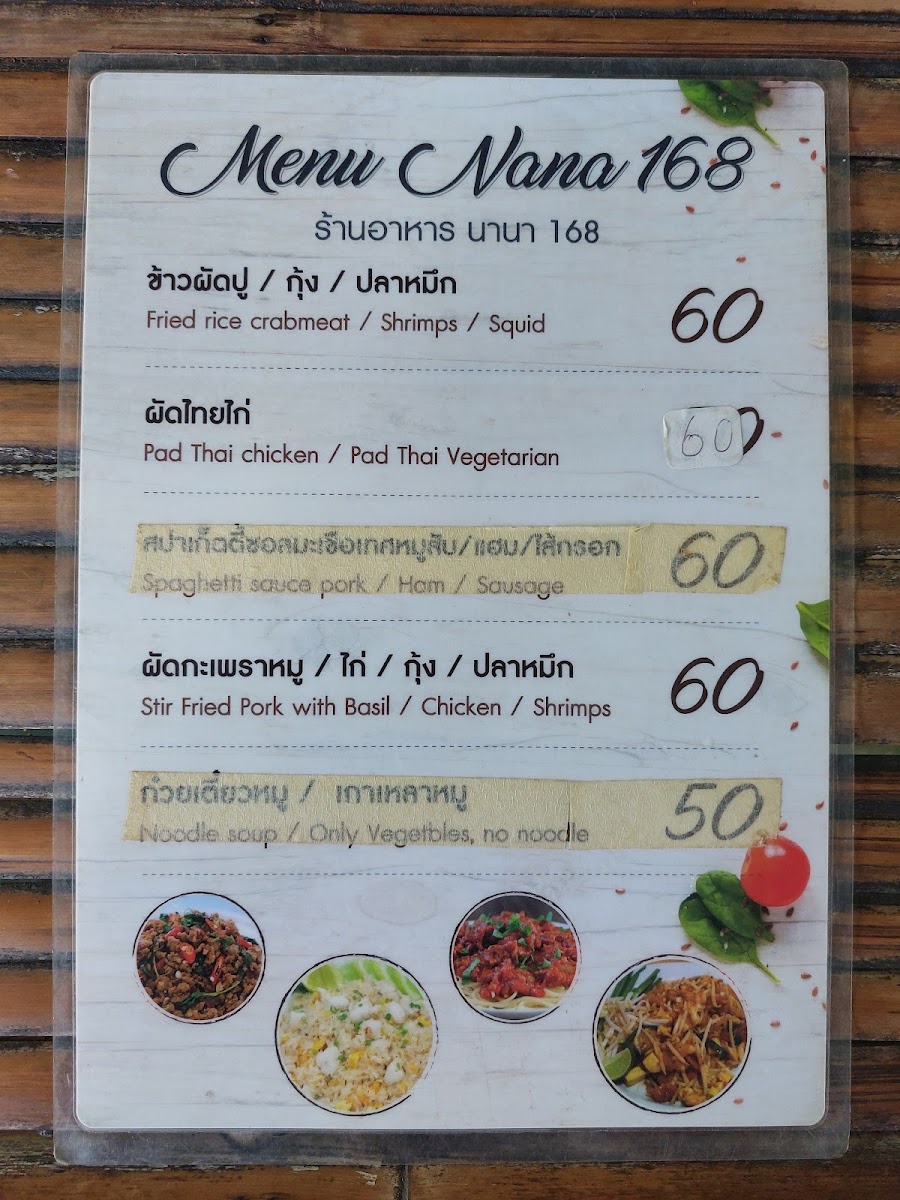 Menu Nana 168
ร้านอาหาร นานา 168
ข้าวผัดปู / กุ้ง / ปลาหมึก
Fried rice crabmeat / Shrimps / Squid
60
ผัดไทยไก่
Pad Thai chicken / Pad Thai Vegetarian
60
สปาเก็ตตี้ซอสมะเขือเทศหมูสับ/แฮม/ไส้กรอก
Spaghetti sauce pork / Ham / Sausage
60
ผัดกะเพราหมู / ไก่ / กุ้ง / ปลาหมึก
Stir Fried Pork with Basil / Chicken / Shrimps
60
ก๋วยเตี๋ยวหมู / เกาเหลาหมู
Noodle soup / Only Vegetbles, no noodle
50